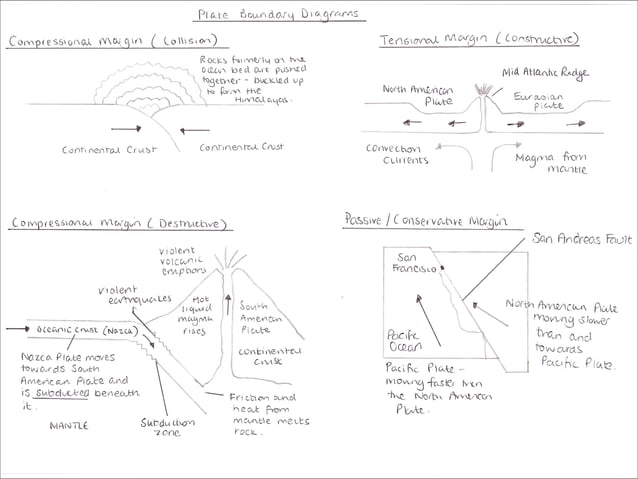 Plate Boundary Diagrams
Compressional Margin (Collision)
Rocks formerly on the
ocean bed are pushed
together - buckled up
to form the
Himalayas.
Continental Crust
Continental Crust
Tensional Margin (Constructive)
Mid Atlantic Ridge
North American
Plate
Eurasian
plate
Convection
currents
Magma from
mantle
Compressional Margin (Destructive)
Violent
volcanic
eruptions
Violent
earthquakes
Hot
liquid
magma
rises
South
American
Plate
Continental
Crust
Oceanic Crust (Nazca)
Nazca Plate moves
towards South
American Plate and
is subducted beneath
it.
MANTLE
Subduction
zone
Friction and
heat from
mantle melts
rock.
Passive / Conservative Margin
San Andreas Fault
San
Francisco
North American Plate
moving slower
than and
towards
Pacific Plate.
Pacific
Ocean
Pacific Plate -
moving faster than
the North American
Plate.